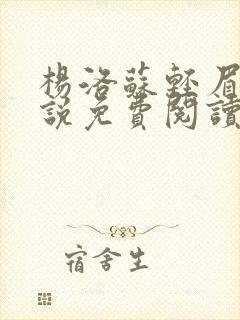 楊洛蘇輕眉
說免費閱讀
宿舍生